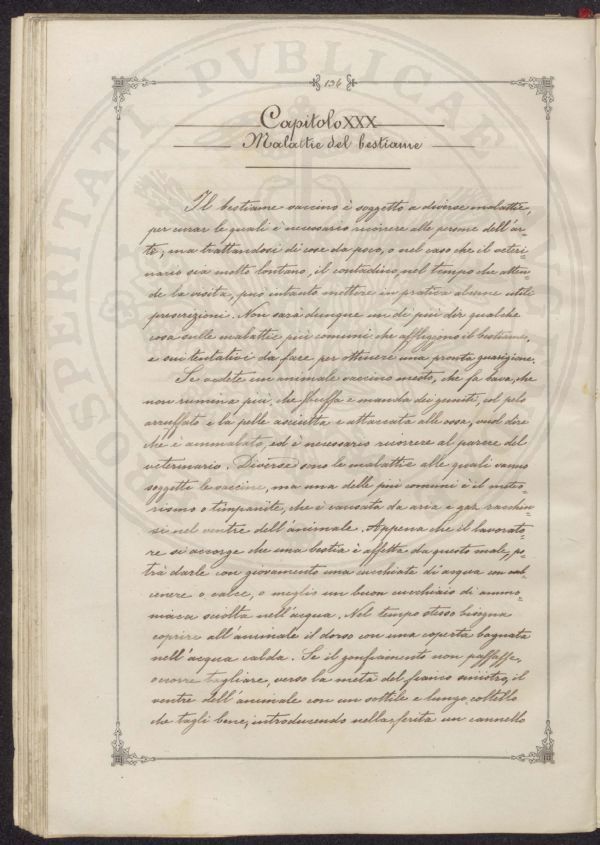 136
Capitolo XXX
Malattie del bestiame
Il bestiame vaccino è soggetto a diverse malattie,
per curar le quali è necessario ricorrere alle persone dell'ar-
te, ma trattandosi di cose da poco, o nel caso che il veteri-
nario sia molto lontano, il contadino, nel tempo che atten-
de la visita, può intanto mettere in pratica alcune utili
prescrizioni. Non sarà dunque un di più dir qualche
cosa sulle malattie più comuni che affliggono il bestiame,
e sui tentativi da fare per ottenere una pronta guarigione.
Se vedete un animale vaccino mesto, che fa bava, che
non rumina più, che sbuffa e manda dei gemiti, col pelo
arruffato e la pelle asciutta e attaccata alle ossa, vuol dire
che è ammalato, ed è necessario ricorrere al parere del
veterinario. Diverse sono le malattie alle quali vanno
soggette le vaccine, ma una delle più comuni è il meteo-
rismo o timpanite, che è causata da aria e gaz racchiu-
si nel ventre dell'animale. Appena che il lavorato-
re si accorge che una bestia è affetta da questo male, po-
trà darle con giovamento una cucchiata di acqua con
cenere o calce, o meglio un buon cucchiaio di ammo-
niaca sciolta nell'acqua. Nel tempo stesso bisogna
coprire all'animale il dorso con una coperta bagnata
nell'acqua calda. Se il gonfiamento non passasse,
occorre tagliare, verso la metà del fianco sinistro, il
ventre dell'animale con un sottile e lungo coltello
che tagli bene, introducendo nella ferita un cannello
PROSPERITATI PVBLICAE AVGENDAE